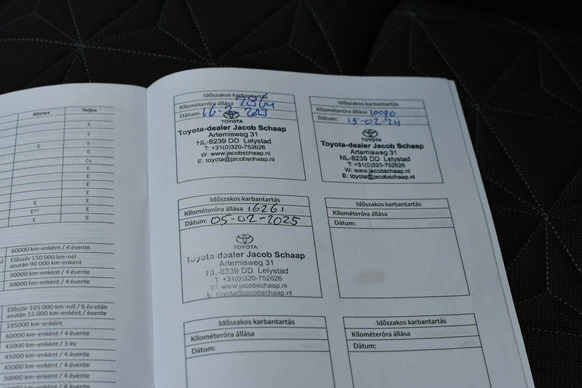 Köztes
Teljes
E
E
E
E
Cs
E
E
E
E
E
E
E
E
60000 km-enként / 4 évente
Először 150 000 km-nél
azután 90 000 km-enként
30000 km-enként / 4 évente
30000 km-enként / 4 évente
Először 105 000 km-nél / 6 év után
azután 15 000 km-enként / évente
195000 km-enként
60000 km-enként / 4 évente
45000 km-enként / 3 év
45000 km-enként / 4 évente
30000 km-enként / 4 évente
Időszakos karbantartás
Kilométeróra állása
Dátum:
TOYOTA
Toyota-dealer Jacob Schaap
Artemisweg 31
NL-8239 DD Lelystad
T: +31(0)320-752626
W: www.jacobschaap.nl
E: toyota@jacobschaap.nl
Időszakos karbantartás
Kilométeróra állása
Dátum: 15-02-24
TOYOTA
Toyota-dealer Jacob Schaap
Artemisweg 31
NL-8239 DD Lelystad
T: +31(0)320-752626
W: www.jacobschaap.nl
E: toyota@jacobschaap.nl
Időszakos karbantartás
Kilométeróra állása 16261
Dátum: 05-02-2025
TOYOTA
Toyota-dealer Jacob Schaap
Artemisweg 31
NL-8239 DD Lelystad
T: +31(0)320-752626
W: www.jacobschaap.nl
E: toyota@jacobschaap.nl
Időszakos karbantartás
Kilométeróra állása
Dátum:
Időszakos karbantartás
Kilométeróra állása
Dátum:
Időszakos karbantartás
Kilométeróra állása
Dátum: